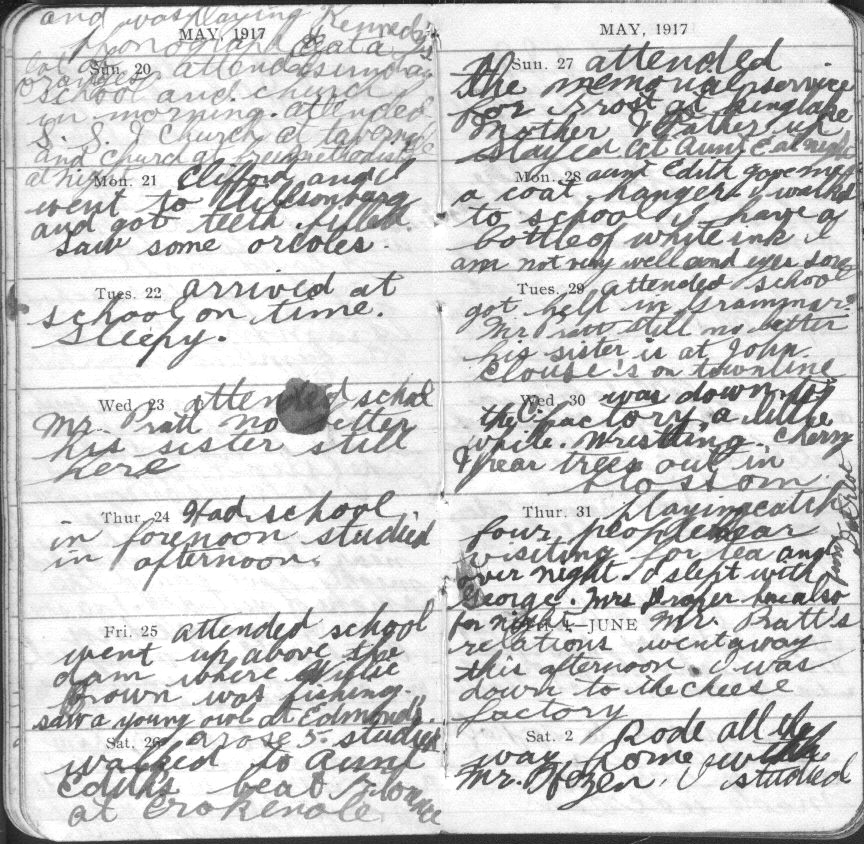 and was playing Kennedy's
phonograph
MAY, 1917
eat a
lot of
oranges
Sun. 20 attended Sunday
school and church
in morning. attended
S. S. & Church at
and church at
at night
Mon. 21 Clifford and I
went to Tillsonburg
and got teeth filled.
saw some orcoles.
Tues. 22 arrived at
school on time.
Sleepy.
Wed. 23 attended schol
Mr. Pratt no better
his sister still
here
Thur. 24 Had school
in forenoon studied
in afternoon.
Fri. 25 attended school
went up above the
dam where Wylie
Brown was fishing.
saw a young owl at Edmonds.
Sat. 26 arose 5- studied
walked to Aunt
Edith's beat Florence
at crokenole
MAY, 1917
Sun. 27 attended
the memorial service
for Frost at Kinglake
Mother & Father up
stayed at Aunt E at night
Mon. 28 aunt Edith gave me
a coat hanger I walked
to school I have a
bottle of white ink I
am not very well and eyes sore
Tues. 29 attended school
got help in Grammar.
Mr Pratt still no better
his sister is at John
Clouse's on townline
Wed. 30 was down to
the C. factory a little
while. Wrestling. Cherry
& Pear trees out in
blossom.
Thur. 31 Playing catch
four people hear
visiting for tea and
over night. I slept with
George. Mrs. Draper her also
for night
Fri. 1—JUNE Mr. Pratt's
relations went away
this afternoon I was
down to the cheese
factory
Sat. 2 Rode all the
way home with
Mr. I studied